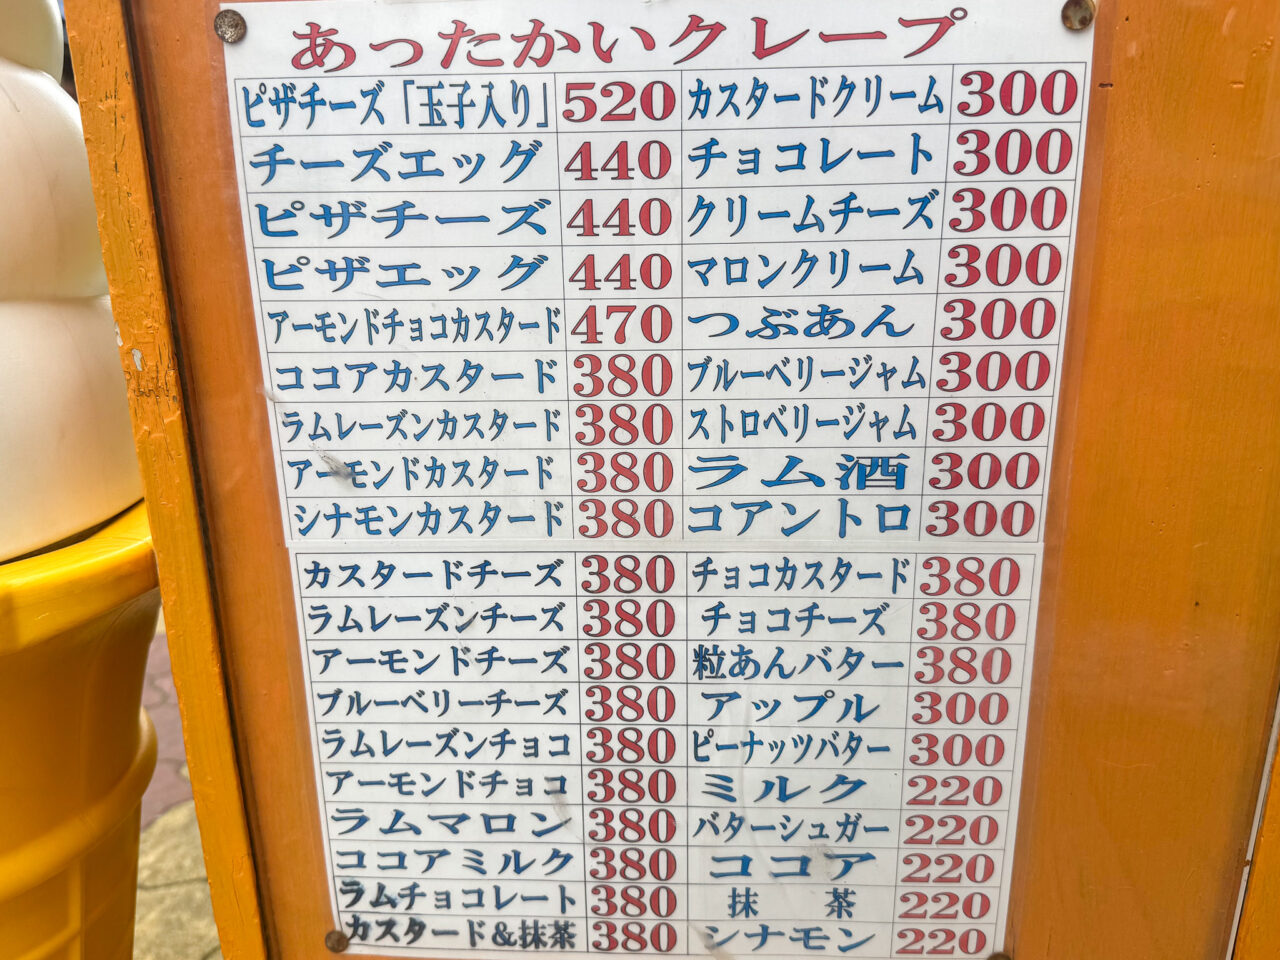 あったかいクレープ
ピザチーズ「玉子入り」 520 カスタードクリーム 300
チーズエッグ 440 チョコレート 300
ピザチーズ 440 クリームチーズ 300
ピザエッグ 440 マロンクリーム 300
アーモンドチョコカスタード 470 つぶあん 300
ココアカスタード 380 ブルーベリージャム 300
ラムレーズンカスタード 380 ストロベリージャム 300
アーモンドカスタード 380 ラム酒 300
シナモンカスタード 380 コアントロ 300
カスタードチーズ 380 チョコカスタード 380
ラムレーズンチーズ 380 チョコチーズ 380
アーモンドチーズ 380 粒あんバター 380
ブルーベリーチーズ 380 アップル 300
ラムレーズンチョコ 380 ピーナッツバター 300
アーモンドチョコ 380 ミルク 220
ラムマロン 380 バターシュガー 220
ココアミルク 380 ココア 220
ラムチョコレート 380 抹茶 220
カスタード&抹茶 380 シナモン 220